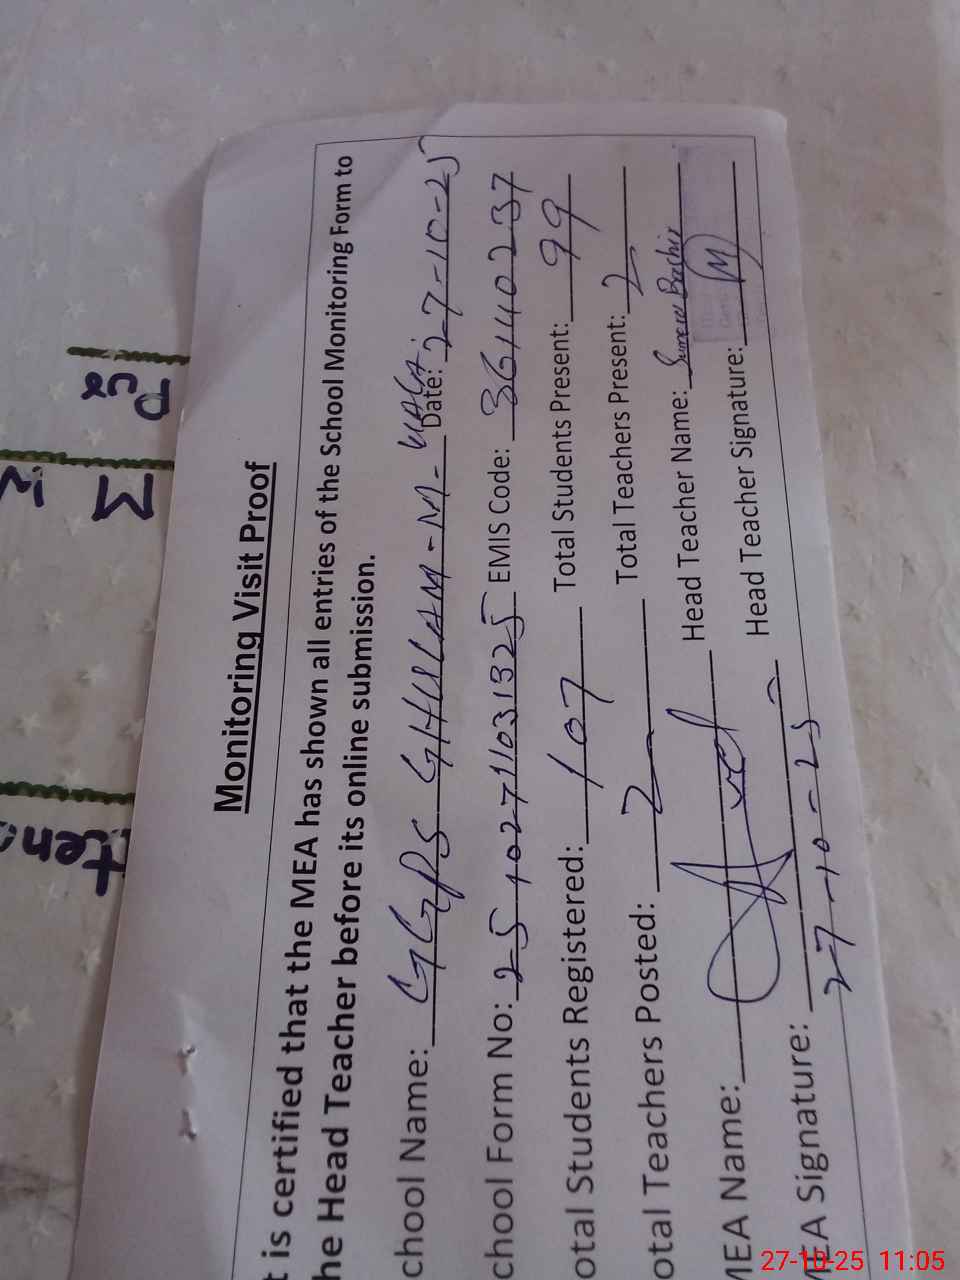 Monitoring Visit Proof
t is certified that the MEA has shown all entries of the School Monitoring Form to
he Head Teacher before its online submission.
chool Name: GGPS GHULAM-M-WALA. Date: 27-10-25
chool Form No: 25102711031325 EMIS Code: 36140237
otal Students Registered: 107 Total Students Present: 99
otal Teachers Posted: 2 Total Teachers Present: 2
MEA Name: Head Teacher Name: Sumera Bashir
MEA Signature: Head Teacher Signature:
27-10-25
27-10-25 11:05